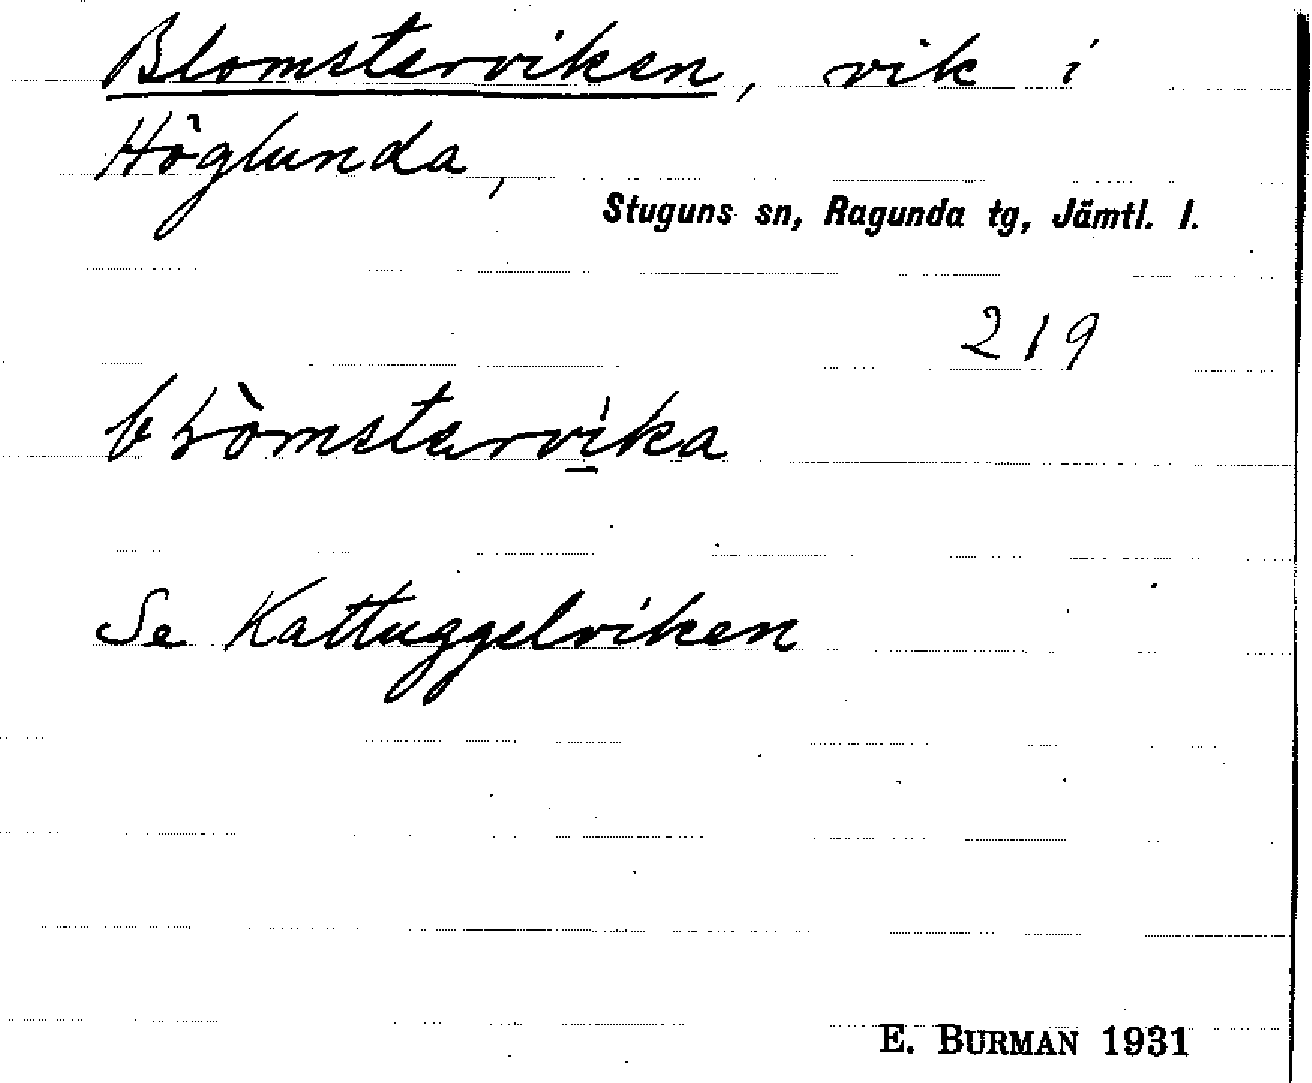 Blomsterviken, vik i
Höglunda,
Stuguns sn, Ragunda tg, Jämtl. l.
219
bʟòmstervi̱ka
Se Kattuggelviken
E. BURMAN 1931